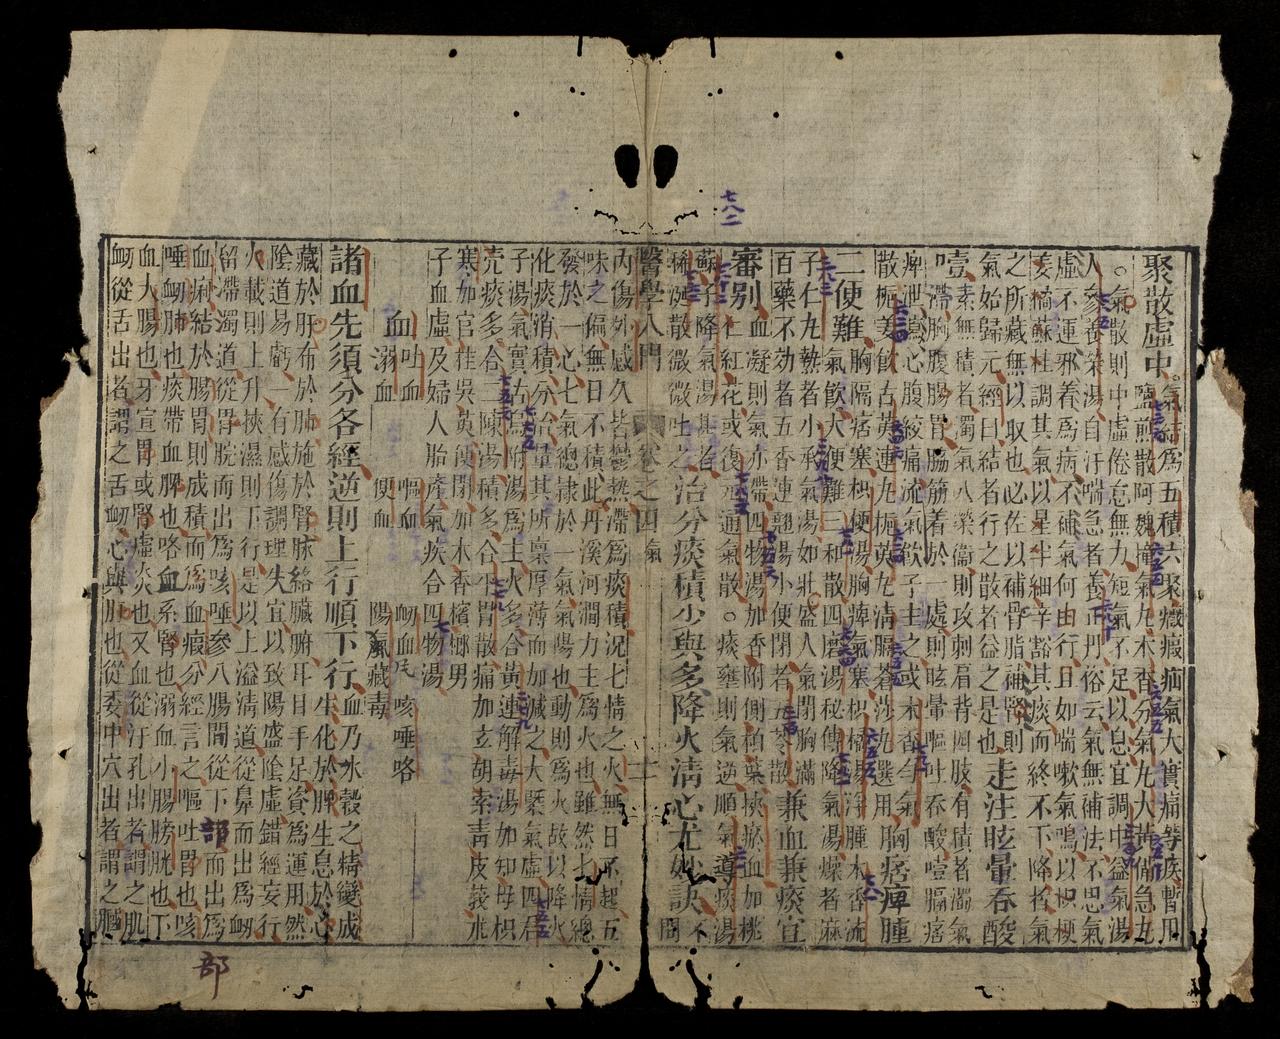 聚散虛中氣結為五積六聚癥瘕疝氣大實痛等疾暫用
鹽煎散阿魏撞氣丸木香分氣丸大黃備急丸
氣散則中虛倦怠無力短氣不足以息宜調中益氣湯
人參養榮湯自汗喘急者養正丹俗云氣無補法不思氣
虛不運邪着為病不補氣何由行且如喘嗽氣鳴以枳梗
蘇桂調其氣以星半細辛豁其痰而終不下降者氣
之所藏無以收也必佐以補骨脂補腎則
氣始歸元經曰結者行之散者益之是也走注眩暈吞酸
噎素無積者濁氣入榮衛則攻刺肩背四肢有積者濁氣
滯胸腹腸胃脇筋着於一處則眩暈嘔吐吞酸噎膈痞
痺泄心腹絞痛流氣飲子主之或木香勻氣
散梔姜飲古萸連丸梔萸丸清膈蒼莎丸選用胸痞痺腫
二便難胸膈痞塞枳梗湯胸痺氣塞枳橘湯浮腫木香流
氣飲大便難三和散四磨湯秘傳降氣湯燥者麻
子仁丸熱者小承氣湯如壯盛人氣閉胸滿
百藥不効者五香連翹湯小便閉者五苓散兼血兼痰宣
審别血凝則氣亦滯四物湯加香附側柏葉挾瘀血加桃
仁紅花或復元通氣散痰壅則氣逆順氣導痰湯
蘇子降氣湯甚者
稀涎散微微吐之治分痰積少與多降火清心尤妙訣
醫學入門 卷之四 氣
內傷外感久皆鬱熱滯為痰積況七情之火無日不起五
味之偏無日不積此丹溪河澗力主為火也雖然七情總
發於一心七氣總隸於一氣氣陽也動則為火故以降火
化痰消積分治量其所稟厚薄而加減之大槩氣虛四君
子湯氣實烏附湯為主火多合黃連解毒湯加知母枳
壳痰多合二陳湯積多合平胃散痛加玄胡索青皮莪朮
寒加官桂吳萸便閉加木香檳榔男
子血虛及婦人胎產氣疾合四物湯
血吐血 嘔血 衂血 咳唾咯
溺血 便血 陽氣藏毒
諸血先須分各經逆則上行順下行血乃水穀之精變成
生化於脾生息於心
藏於肝布於肺施於腎脉絡臟腑耳目手足資為運用然
陰道易虧一有感傷調理失宜以致陽盛陰虛錯經妄行
火載則上升挾濕則下行是以上溢清道從鼻而出為衂
留滯濁道從胃脘而出為咳唾參入腸間從下部而出為
血痢結於腸胃則成積而為血瘕分經言之嘔吐胃也咳
唾衂肺也痰帶血脾也咯血系腎也溺血小腸膀胱也下
血大腸也牙宣胃或腎虛炎也又血從汗孔出者謂之肌
衂從舌出者謂之舌衂心與肝也從委中穴出者謂之膕
七八二
部
部